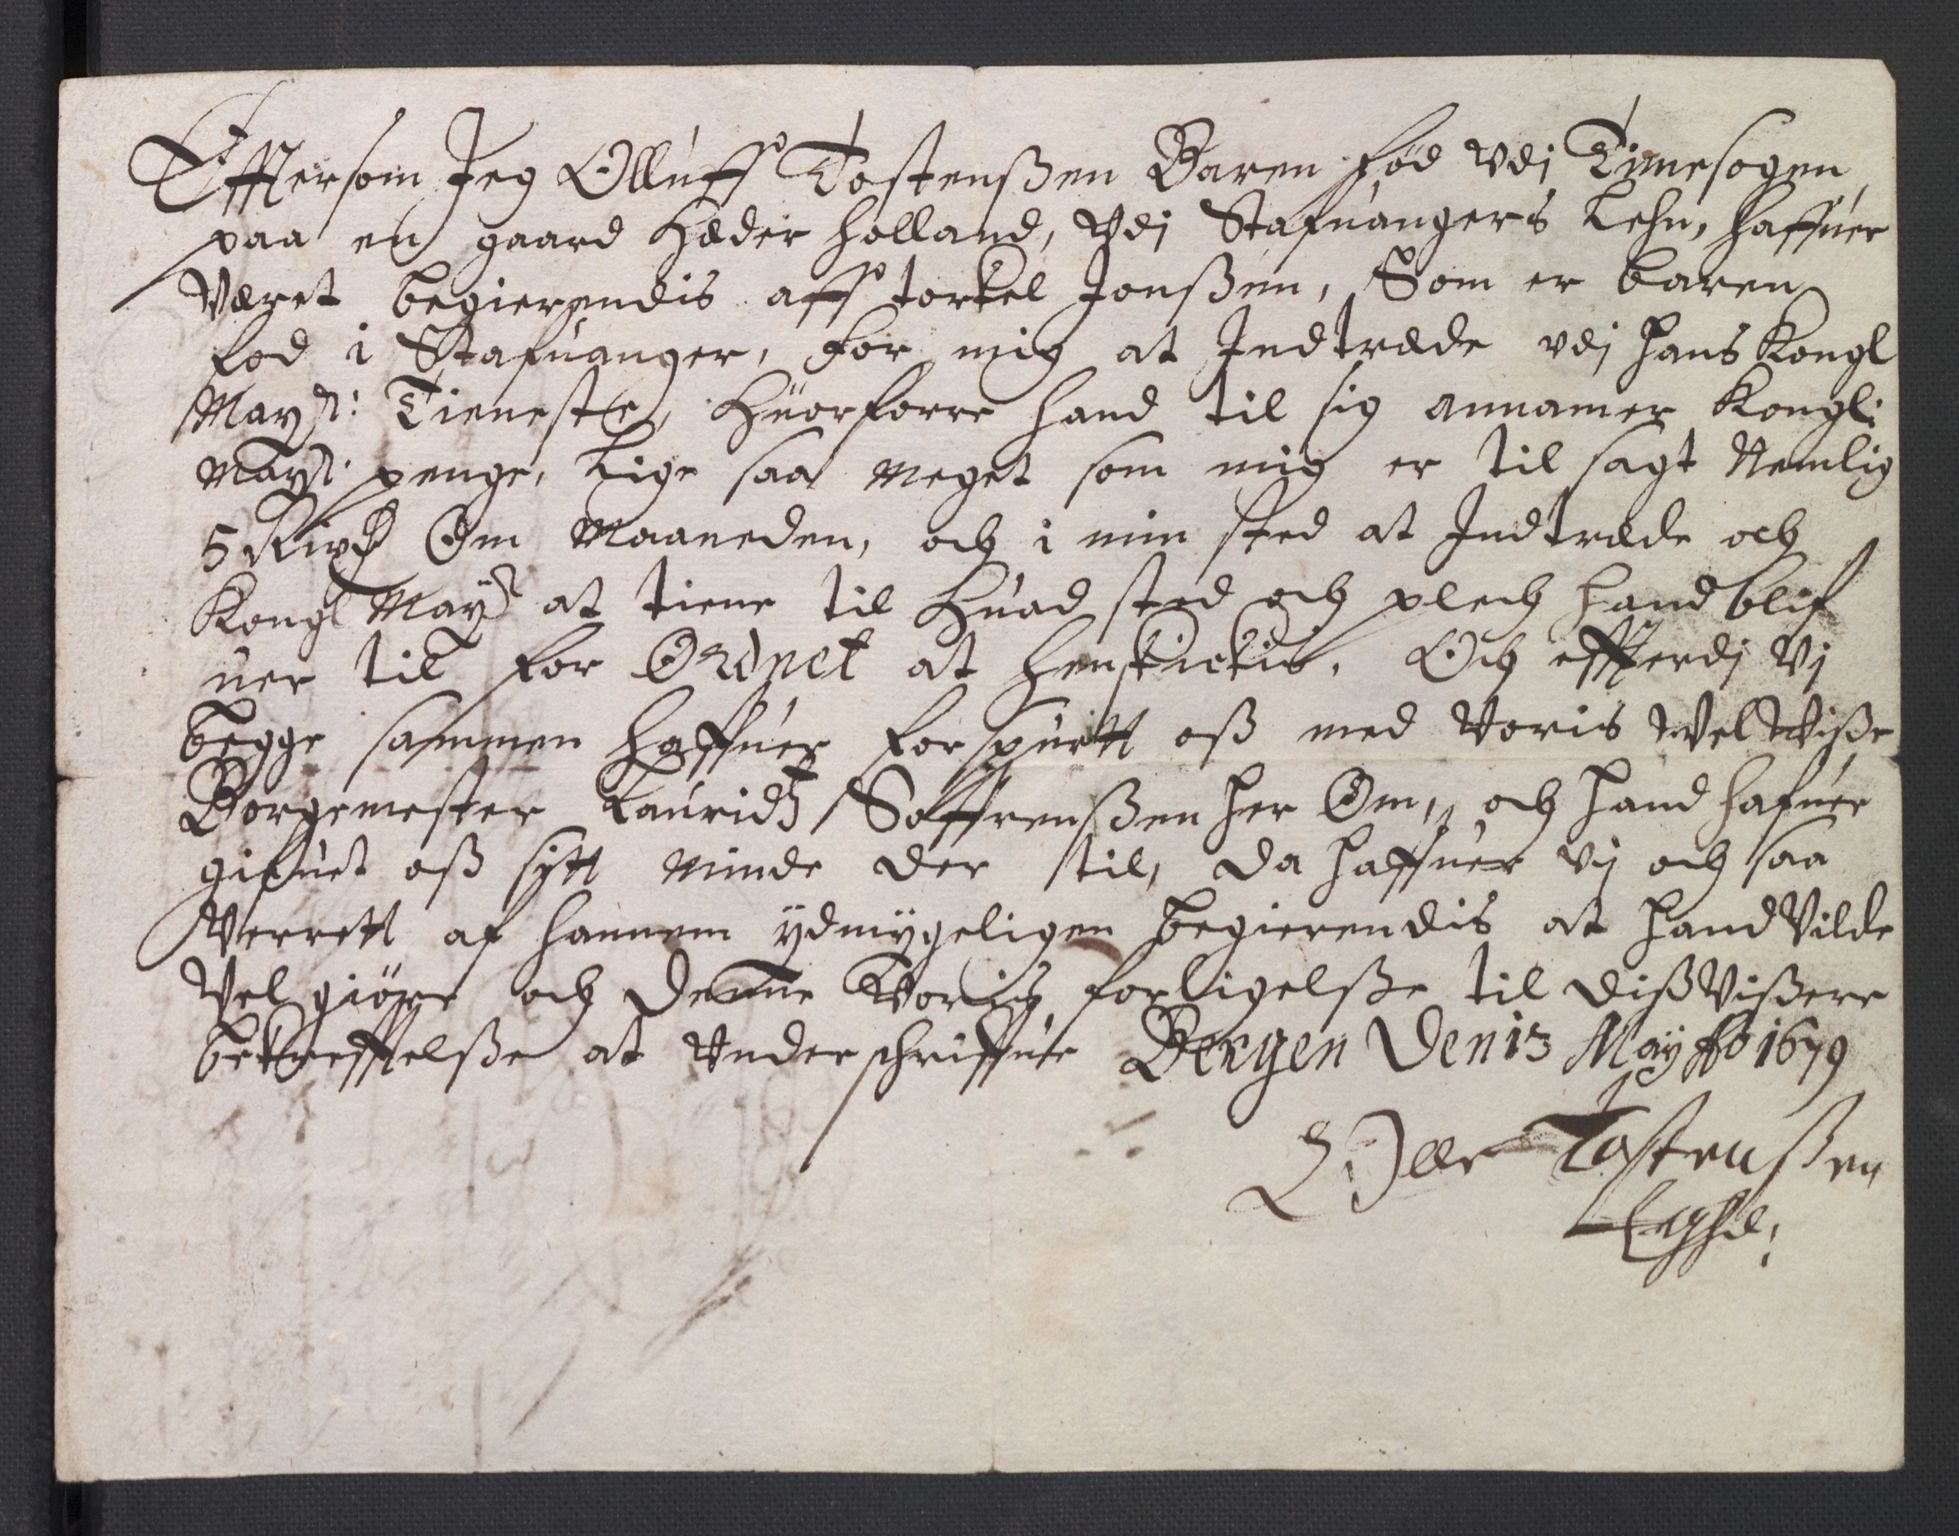 Effttersom Jeg Olluff Tostenßen Baren fød vdj Timesogen
paa en gaard Heder Holland, Vdj Stafuangers Lehn, haffuer
Været begierendis aff torkel Jonßen, Som er baren
fød i Stafuanger, for mig at Jndtræde vdj Hans Kongl
Mayt: Tieneste, Huorforre hand til sig annamer Kongl:
Mayt: penge, Lige saa Meget som mig er til sagt Nemlig
5 Rixd Om Maaneden, och i min sted at Jndtræde och
Kongl Mayt at tiene til Huad sted och plech Hand blif
uer til for Ordnet at henskickis. Och effterdj Vj
begge sammen haffuer forspurtt oß med Voris Wel Viße
Borgemester Lauridtz Søffrenßen Her Om, och Hand hafuer
gifuet oß sitt Minde der til, da Haffuer vj och saa
Verrett af hannem ydmygeligen begierendis at Hand Vilde
Vel giöre och denne Voris forligelße til dißVißere
bekrefftelße at Vnderschriffue Bergen Den 13 May Ao 1679
Tostenßen